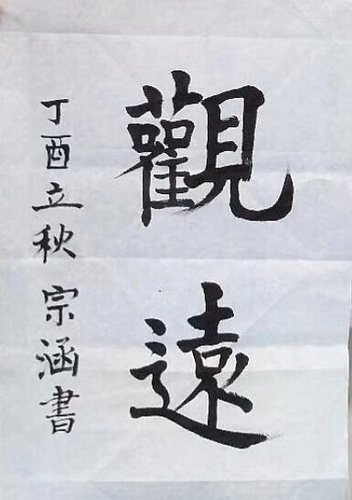 觀遠
丁酉立秋宗涵書